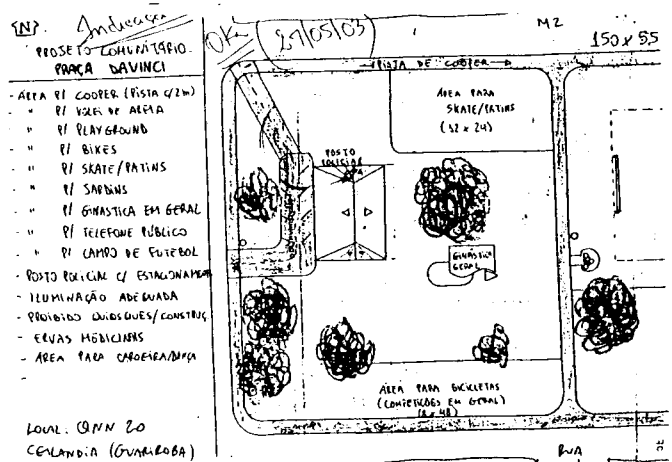 [N]. Indicação
PROJETO COMUNITÁRIO
PRAÇA DAVINCI
- ÁREA P/ COOPER (PISTA C/2m)
- " P/ VOLEI DE AREIA
- " P/ PLAYGROUND
- " P/ BIKES
- " P/ SKATE/PATINS
- " P/ JARDINS
- " P/ GINASTICA EM GERAL
- " P/ TELEFONE PÚBLICO
- " P/ CAMPO DE FUTEBOL
- POSTO POLICIAL C/ ESTACIONAMEN
- ILUMINAÇÃO ADEQUADA
- PROIBIDO QUIOSQUES/CONSTRUÇ
- ERVAS MEDICINAIS
- ÁREA PARA CAPOEIRA/DANÇA
-
LOCAL: QNN 20
CEILANDIA (GUARIROBA)
OK
27/05/03
M2
150 x 55
PISTA DE COOPER
ÁREA PARA
SKATE/PATINS
(32 x 24)
POSTO
POLICIAL
GINASTICA
GERAL
ÁREA PARA BICICLETAS
(COMPETIÇÕES EM GERAL)
RUA